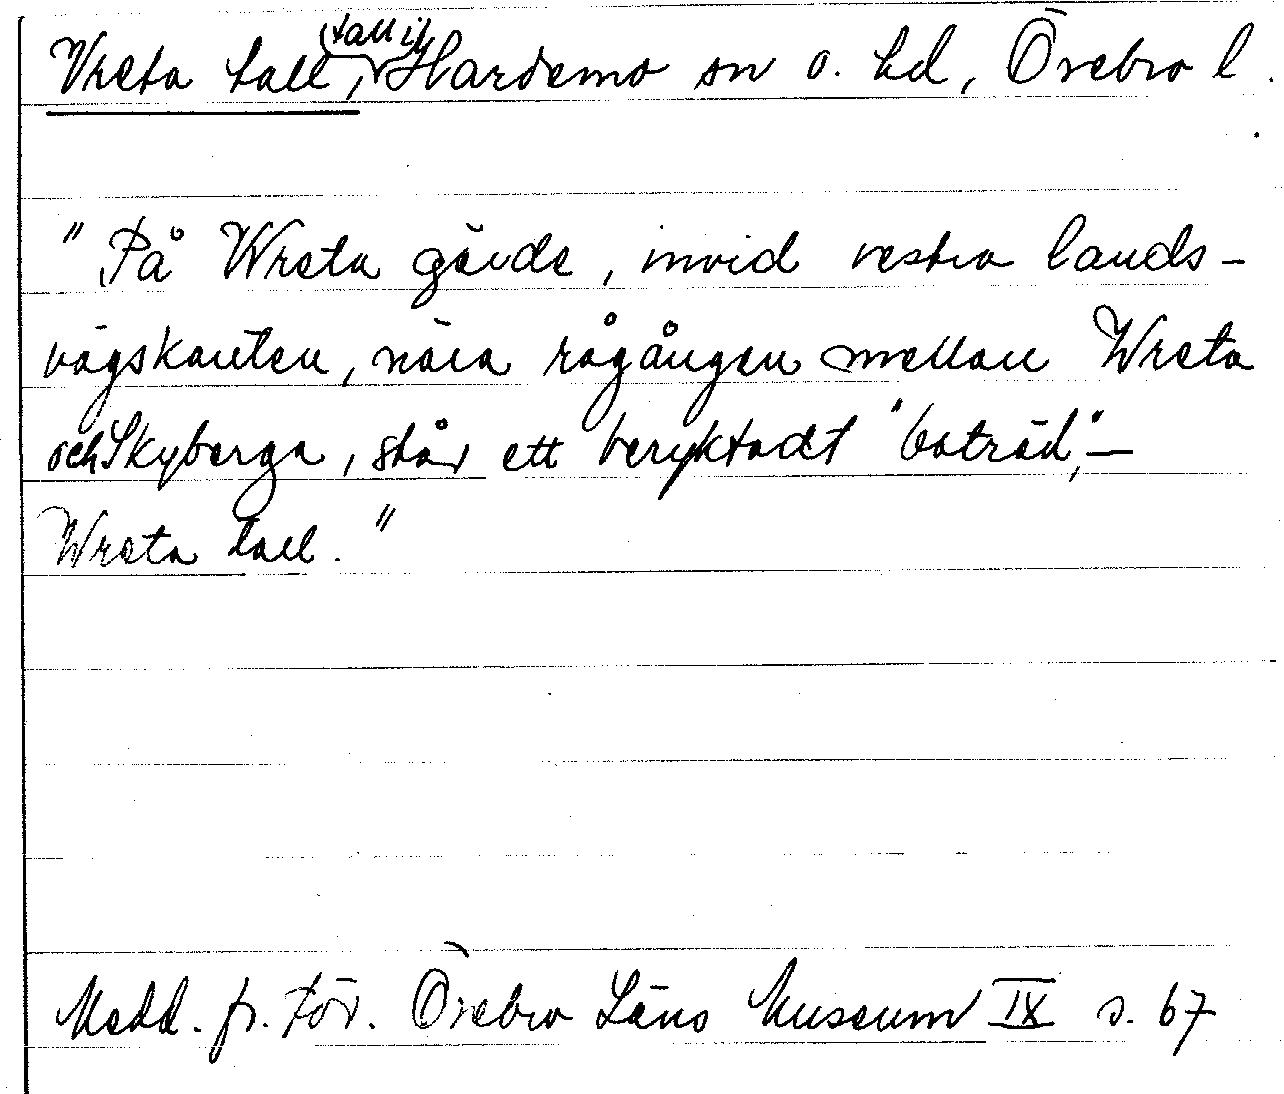 Vreta tall, (tall i) Hardemo sn o. hd, Örebro l.
"På Wreta gärde, invid vestra lands-
vägskanten, nära rågången mellan Wreta
och Skyberga, står ett beryktadt "boträd", –
Wreta tall."
Medd. fr. För. Örebro Läns Museum IX s. 67